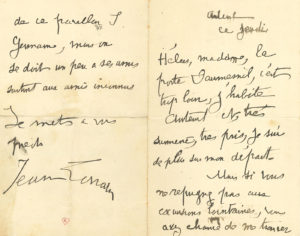 Auteuil
ce jeudi
Hélas, madame, la
porte Daumesnil, c'est
trop loin, j'habite
Auteuil et très
très pris, je suis
de plus sur mon départ
Mais si vous
ne répugne pas aux
excursions lointaines,
de me trouver
de ce
Germain, mais on
se doit un peu à ses amis
surtout aux amis inconnus
Je mets à vos
pieds
Jean Lorrain